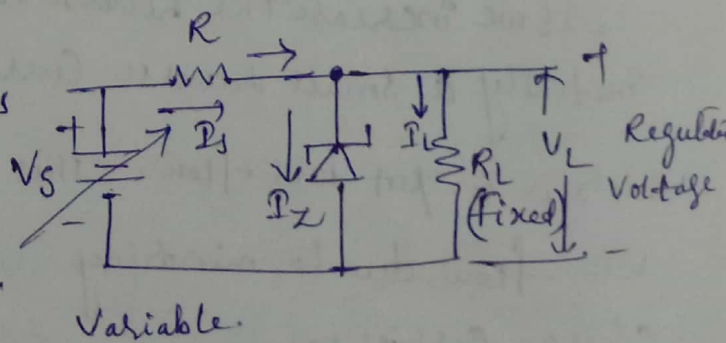 R
+
I_S
+
V_S
-
I_Z
I_L
R_L
(fixed)
V_L
Regulated
Voltage
-
Variable.